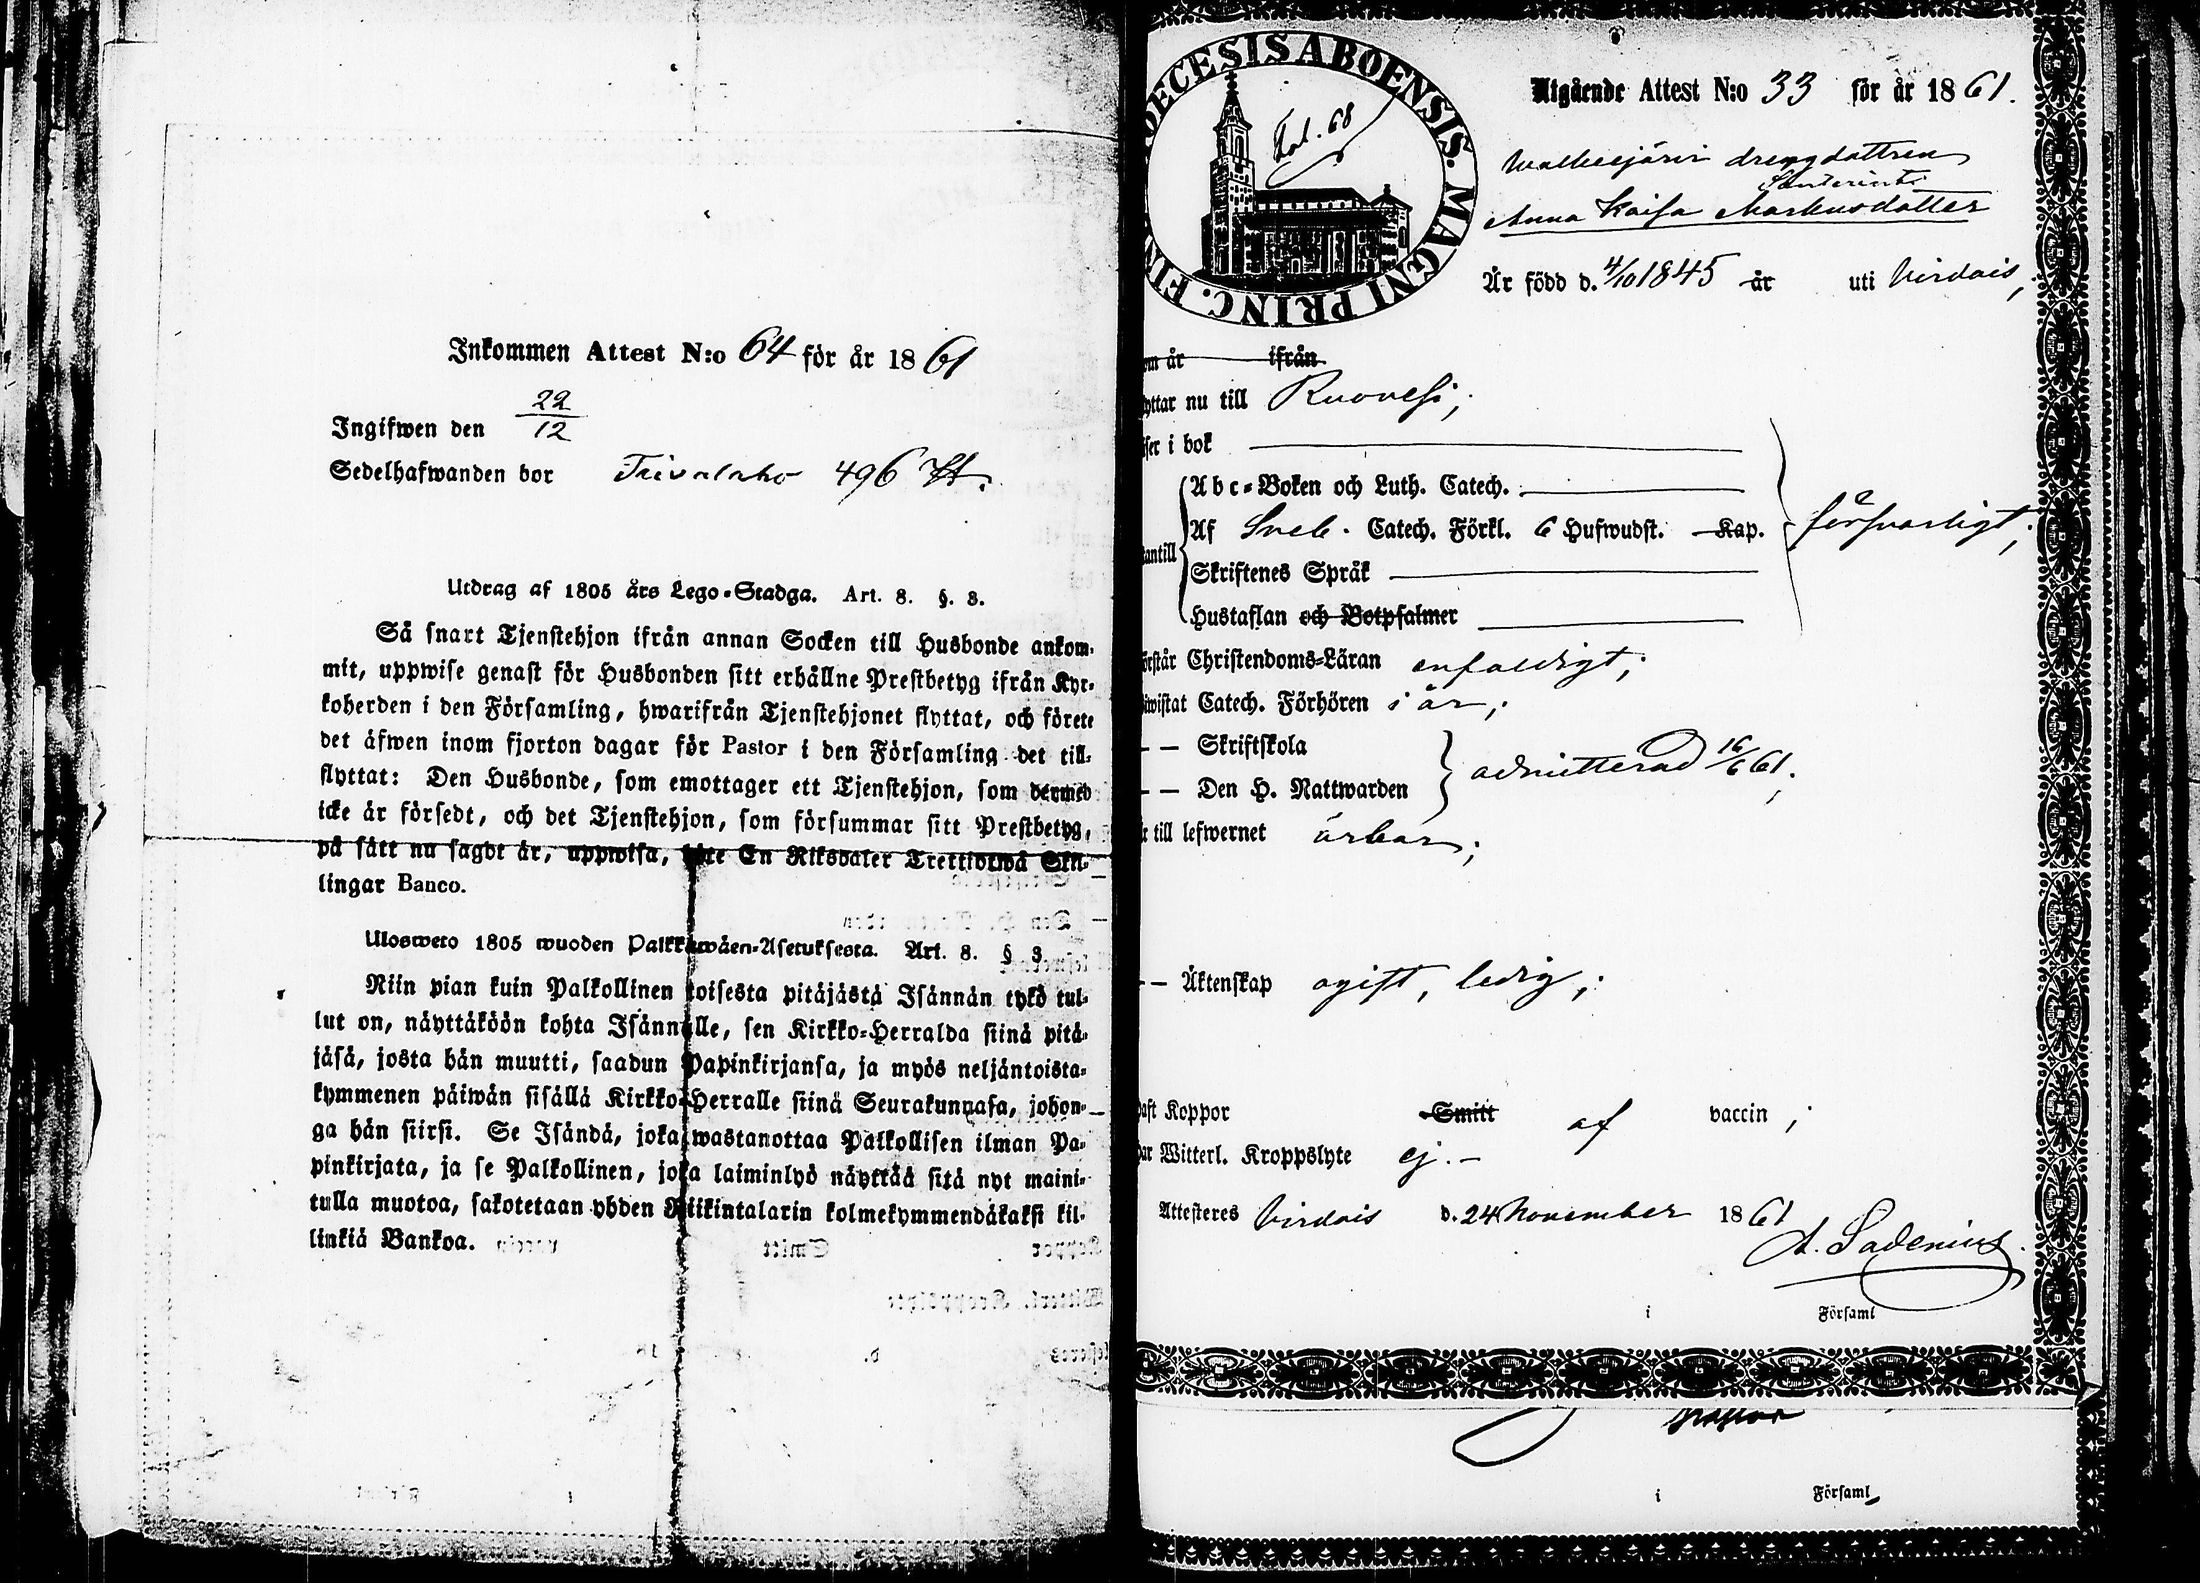 Inkommen Attest N:o 64 för år 1861
Ingifwen den 22/12
Sedelhafwanden bor 496
Utdrag af 1805 års Lego-Stadga. Art. 8. §. 3.
Så snart Tjenstehjon ifrån annan Socken till Husbonde ankom-
mit, uppwise genast för Husbonden sitt erhållne Prestbetyg ifrån Kyr-
koherden i den Församling, hwarifrån Tjenstehjonet flyttat, och förete
det äfwen inom fjorton dagar för Pastor i den Församling det till-
flyttat: Den Husbonde, som emottager ett Tjenstehjon, som dermed
icke är försedt, och det Tjenstehjon, som försummar sitt Prestbetyg,
på sätt nu sagdt är, uppwisa, böte En Riksdaler Trettiotwå Skil-
lingar Banco.
Ulosweto 1805 wuoden Palkkawäen-Asetuksesta. Art. 8. § 3.
Niin pian kuin Palkollinen toisesta pitäjästä Isännän tykö tul-
lut on, näyttäköön kohta Isännälle, sen Kirkko-Herralda siinä pitä-
jäsä, josta hän muutti, saadun Papinkirjansa, ja myös neljäntoista-
kymmenen päiwän sisällä Kirkko-Herralle siinä Seurakunnasa, johon-
ga hän siirsi. Se Isändä, joka wastanottaa Palkollisen ilman Pa-
pinkirjata, ja se Palkollinen, joka laiminlyö näyttää sitä nyt maini-
tulla muotoa, sakotetaan yhden Riikintalarin kolmekymmendäkaksi kil-
linkiä Bankoa.
DECESIS ABOENSIS. MAGNI PRINC. FIN
Fol. 68
Utgående Attest N:o 33 för år 1861.
drengdottren
Anna Kaisa Markusdotter
Är född d. 4/10 1845 år uti Virdois,
om år ifrån
yttar nu till Ruovesi;
ser i bok
Abc-Boken och Luth. Catech.
antill Af Sveb. Catech. Förkl. 6 Hufwudst. Kap. försvarligt;
Skriftenes Språk
Hustaflan och Botpsalmer
örstår Christendoms-Läran enfaldigt;
iwistat Catech. Förhören i år;
— — Skriftskola
— — Den H. Nattwarden admitterad 16/6 61;
r till lefwernet ärbar;
— — Äktenskap ogift, ledig;
aft Koppor Smitt af vaccin;
ar Witterl. Kroppslyte ej.—
Attesteres Virdois d. 24 November 1861
A. Sadenius.
i Församl
Pastor
i Församl